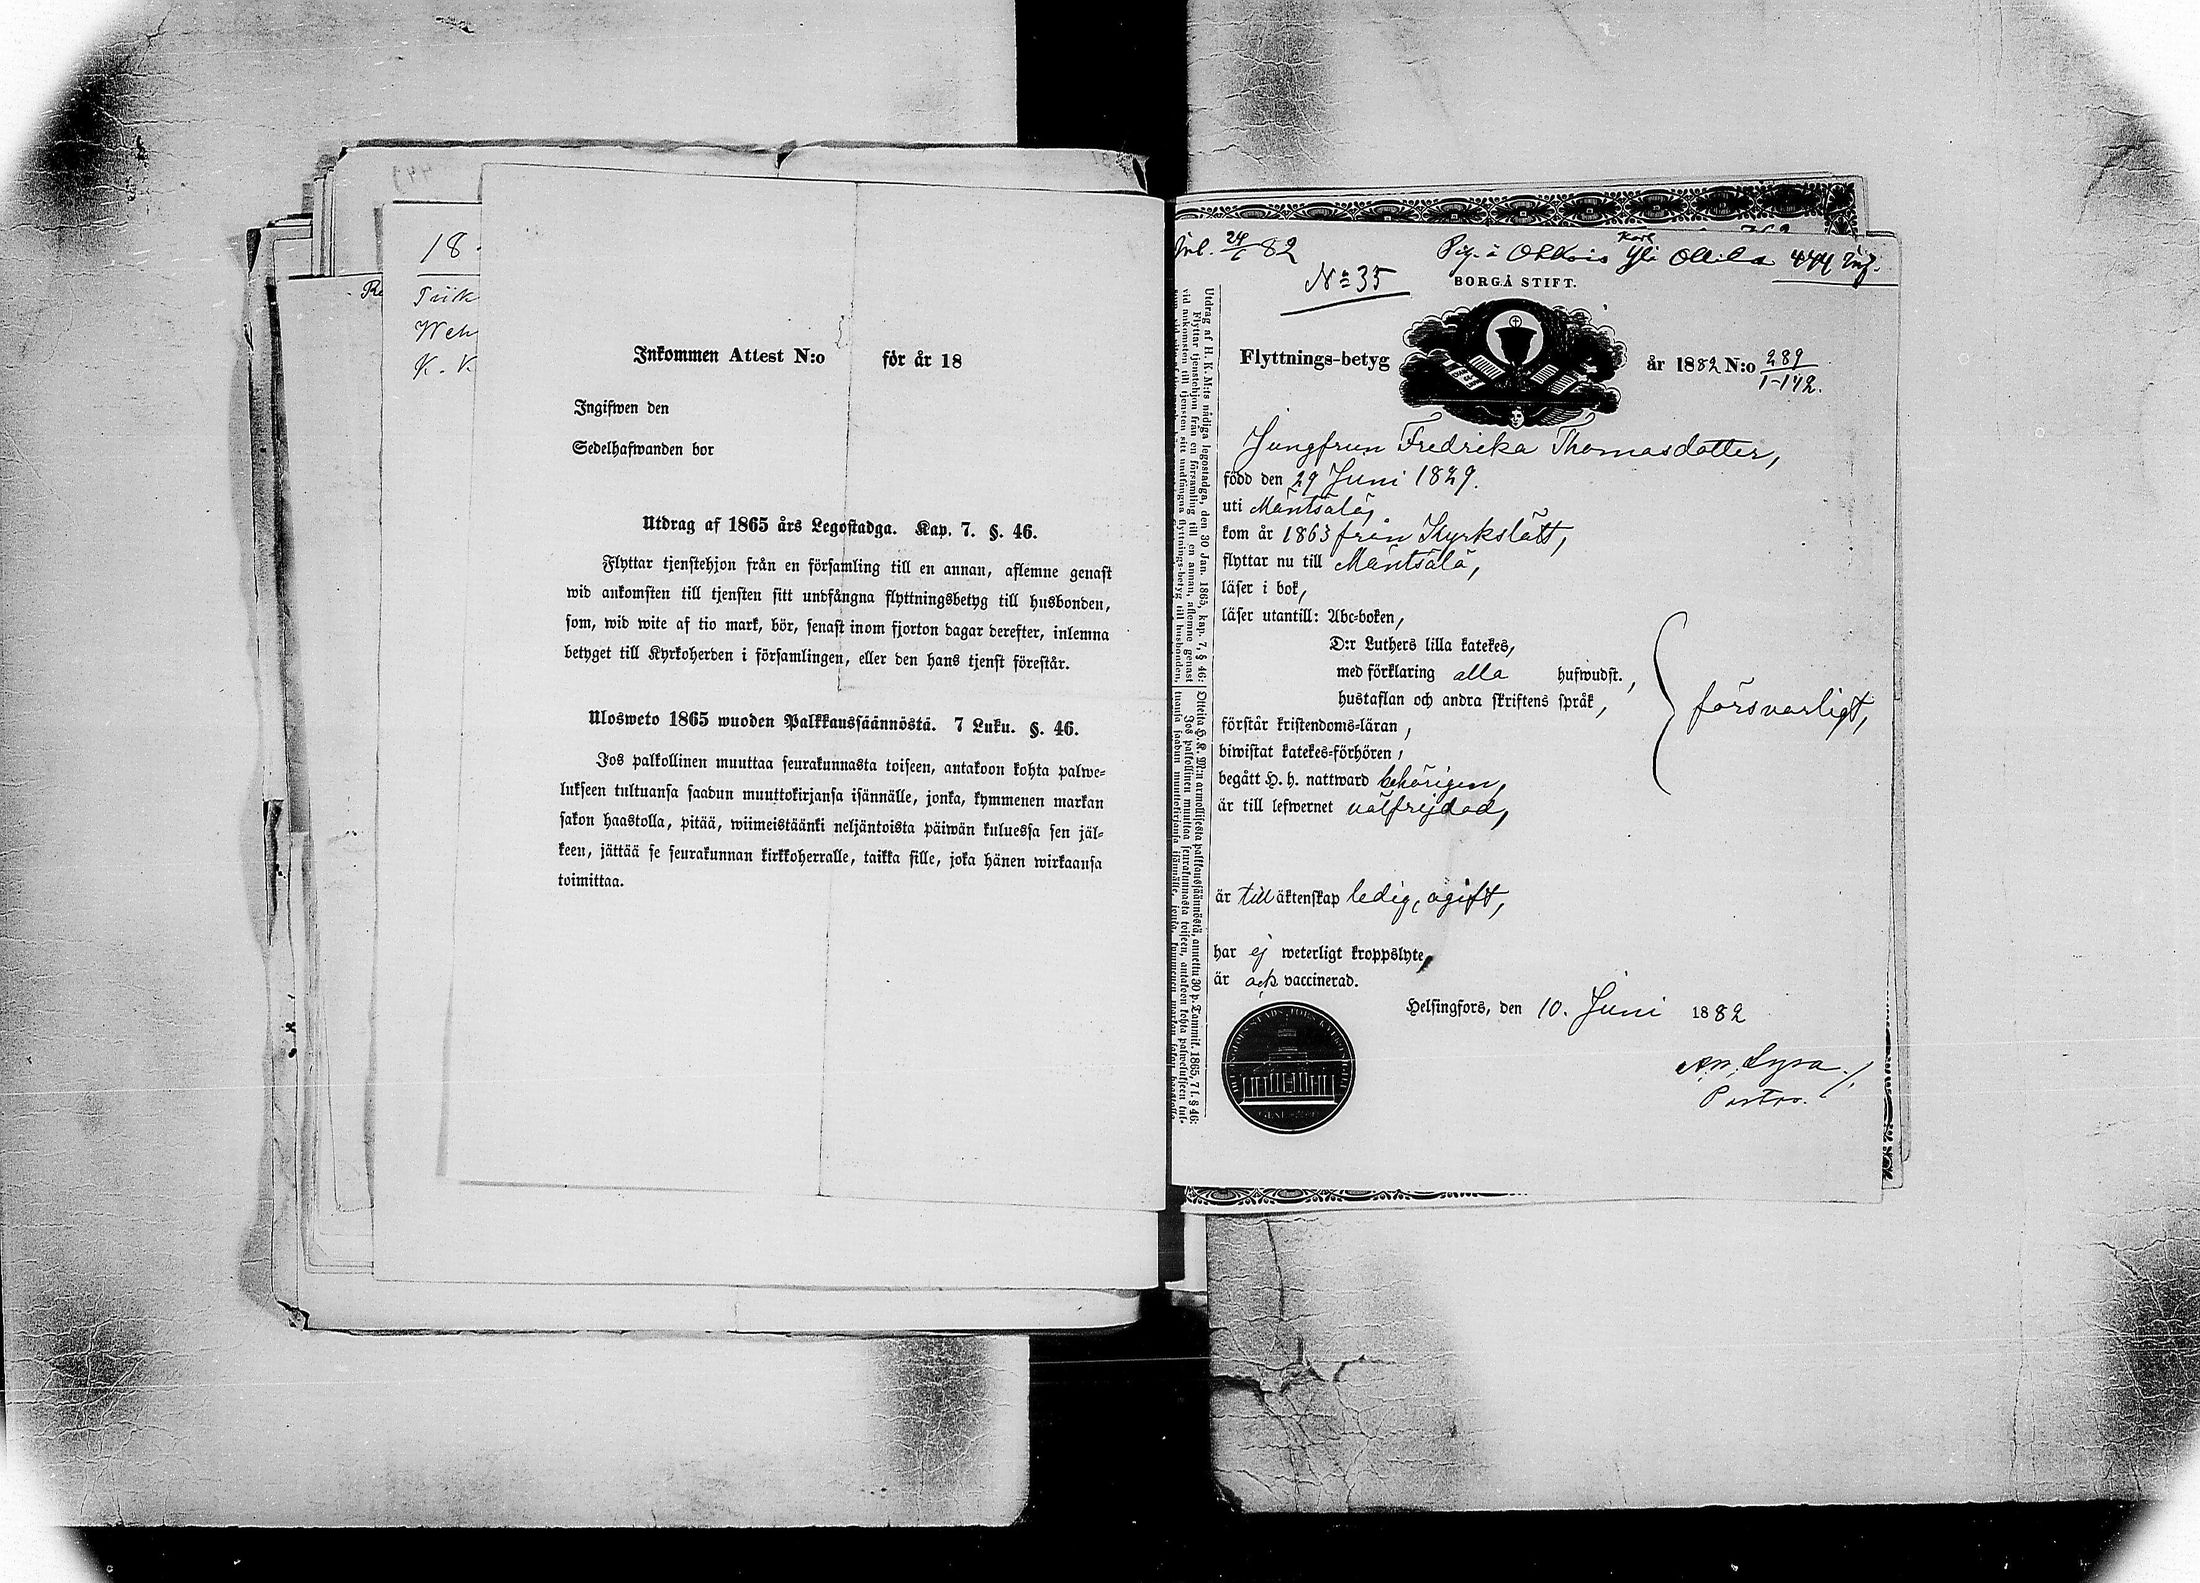 18
Inkommen Attest N:o för år 18
Ingifwen den
Sedelhafwanden bor
Utdrag af 1865 års Legostadga. Kap. 7. §. 46.
Flyttar tjenstehjon från en församling till en annan, aflemne genast
wid ankomsten till tjensten sitt undfångna flyttningsbetyg till husbonden,
som, wid wite af tio mark, bör, senast inom fjorton dagar derefter, inlemna
betyget till Kyrkoherden i församlingen, eller den hans tjenst förestår.
Ulosweto 1865 wuoden Palkkaussäännöstä. 7 Luku. §. 46.
Jos palkollinen muuttaa seurakunnasta toiseen, antakoon kohta palwe-
lukseen tultuansa saadun muuttokirjansa isännälle, jonka, kymmenen markan
sakon haastolla, pitää, wiimeistäänki neljäntoista päiwän kuluessa sen jäl-
keen, jättää se seurakunnan kirkkoherralle, taikka sille, joka hänen wirkaansa
toimittaa.
24/6 82
Karl
Pig. i Ohkois Yli Ollila 444
No 35
BORGÅ STIFT.
Flyttnings-betyg år 1882 N:o 289
1-142.
Jungfrun Fredrika Thomasdotter,
född den 29 Juni 1829.
uti Mäntsälä,
kom år 1863 från Kyrkslätt,
flyttar nu till Mäntsälä,
läser i bok,
läser utantill: Abc-boken,
D:r Luthers lilla katekes,
med förklaring alla hufwudst.,
hustaflan och andra skriftens språk,
försvarligt,
förstår kristendoms-läran,
biwistat katekes-förhören,
begått H. h. nattward behörigen,
är till lefwernet välfrejdad,
är till äktenskap ledig, ogift,
har ej weterligt kroppslyte,
är ock vaccinerad.
Helsingfors, den 10. Juni 1882
Lyra
Pastor.
Utdrag af H. K. M:ts nådiga legostadga, den 30 Jan. 1865, kap. 7, § 46:
Flyttar tjenstehjon från en församling till en annan, aflemne genast
vid ankomsten till tjensten sitt undfångna flyttnings-betyg till husbonden,
Otteita H. K. M:n armollisesta palkkaussäännöstä, annettu 30 p. Tammik. 1865, 7 l. § 46:
Jos palkollinen muuttaa seurakunnasta toiseen, antakoon kohta palwelukseen tul-
tuansa saadun muuttokirjansa isännälle, jonka, kymmenen markan sakon haastolla